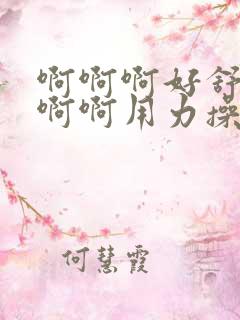 啊啊啊好舒
啊啊用力操
何慧霞